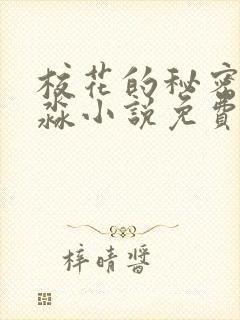 校花的秘密
淼小说免費
梓晴醬